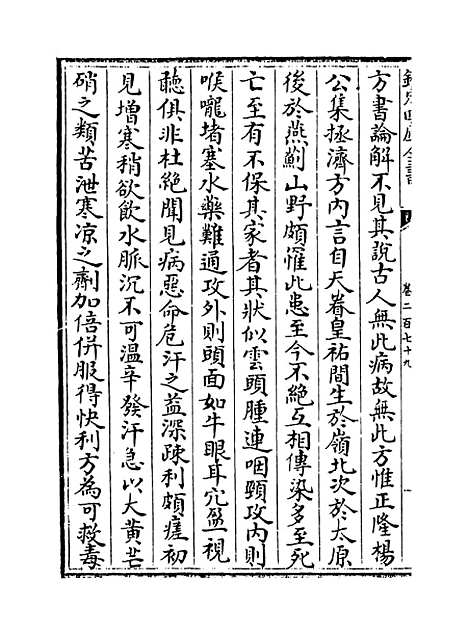 欽定四庫全書
卷二百七十九
方書論解不見其說古人無此病故無此方惟正隆楊
公集拯濟方內言自天眷皇祐間生於嶺北次於太原
後於燕薊山野頗罹此患至今不絕互相傳染多至死
亡至有不保其家者其狀似雲頭腫連咽頸攻內則
喉嚨堵塞水藥難通攻外則頭面如牛眼耳穴盈視
聽俱非杜絕聞見病惡命危汗之益深疎利頗瘥初
見增寒稍欲飲水脈沉不可溫辛發汗急以大黃芒
硝之類苦泄寒涼之劑加倍併服得快利方為可救毒